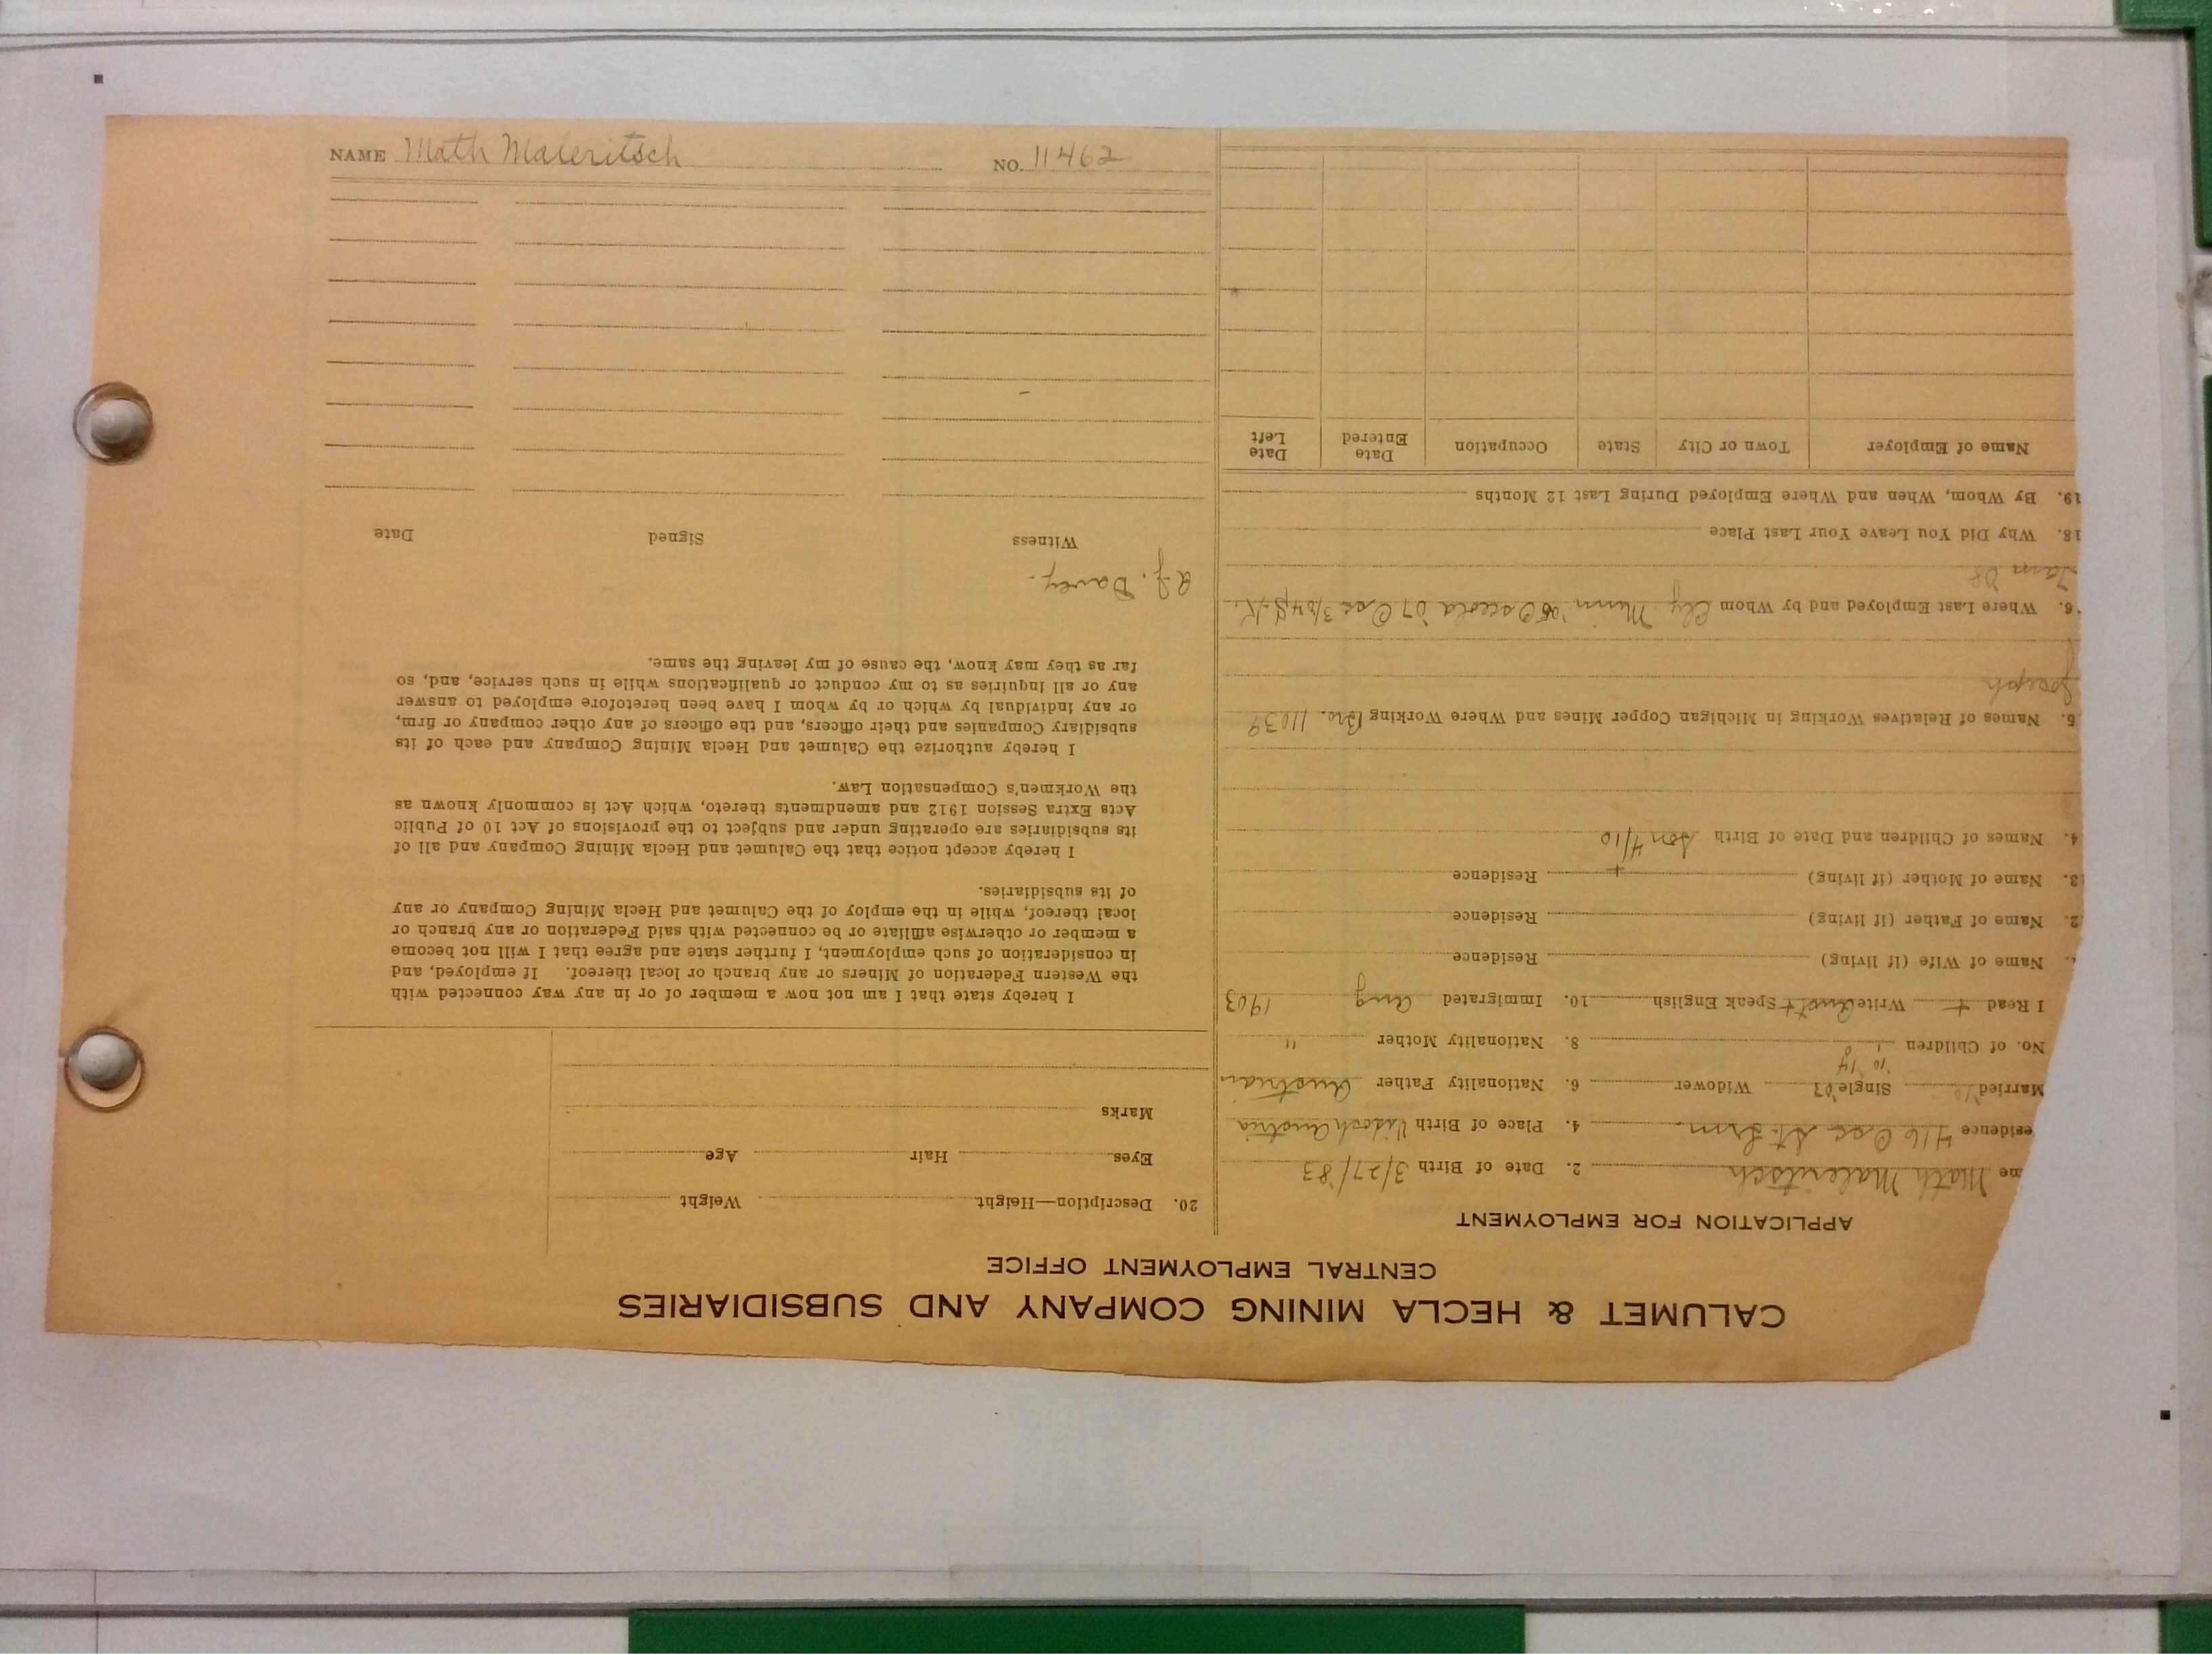 NAME Math Maleritsch NO. 11462
CALUMET & HECLA MINING COMPANY AND SUBSIDIARIES
CENTRAL EMPLOYMENT OFFICE
APPLICATION FOR EMPLOYMENT
me Math Maleritsch 2. Date of Birth 3/27/83
esidence 416 Osc St. Lrm 4. Place of Birth Austria
Married '10 Single '03 Widower 6. Nationality Father Austrian
'10 '14
No. of Children 1 8. Nationality Mother "
I Read + Write Aust + Speak English 10. Immigrated Aug 1903
Name of Wife (if living) Residence
2. Name of Father (if living) Residence
3. Name of Mother (if living) + Residence
4. Names of Children and Date of Birth Son 4/10
5. Names of Relatives Working in Michigan Copper Mines and Where Working Bro. 11039
Joseph
6. Where Last Employed and by Whom Ely Minn Osceola '07 Osc 3/04
18. Why Did You Leave Your Last Place
19. By Whom, When and Where Employed During Last 12 Months
Name of Employer Town or City State Occupation Date Entered Date Left
20. Description—Height Weight
Eyes Hair Age
Marks
I hereby state that I am not now a member of or in any way connected with
the Western Federation of Miners or any branch or local thereof. If employed, and
in consideration of such employment, I further state and agree that I will not become
a member or otherwise affiliate or be connected with said Federation or any branch or
local thereof, while in the employ of the Calumet and Hecla Mining Company or any
of its subsidiaries.
I hereby accept notice that the Calumet and Hecla Mining Company and all of
its subsidiaries are operating under and subject to the provisions of Act 10 of Public
Acts Extra Session 1912 and amendments thereto, which Act is commonly known as
the Workmen's Compensation Law.
I hereby authorize the Calumet and Hecla Mining Company and each of its
subsidiary Companies and their officers, and the officers of any other company or firm,
or any individual by which or by whom I have been heretofore employed to answer
any or all inquiries as to my conduct or qualifications while in such service, and, so
far as they may know, the cause of my leaving the same.
A.J. Davey.
Witness Signed Date